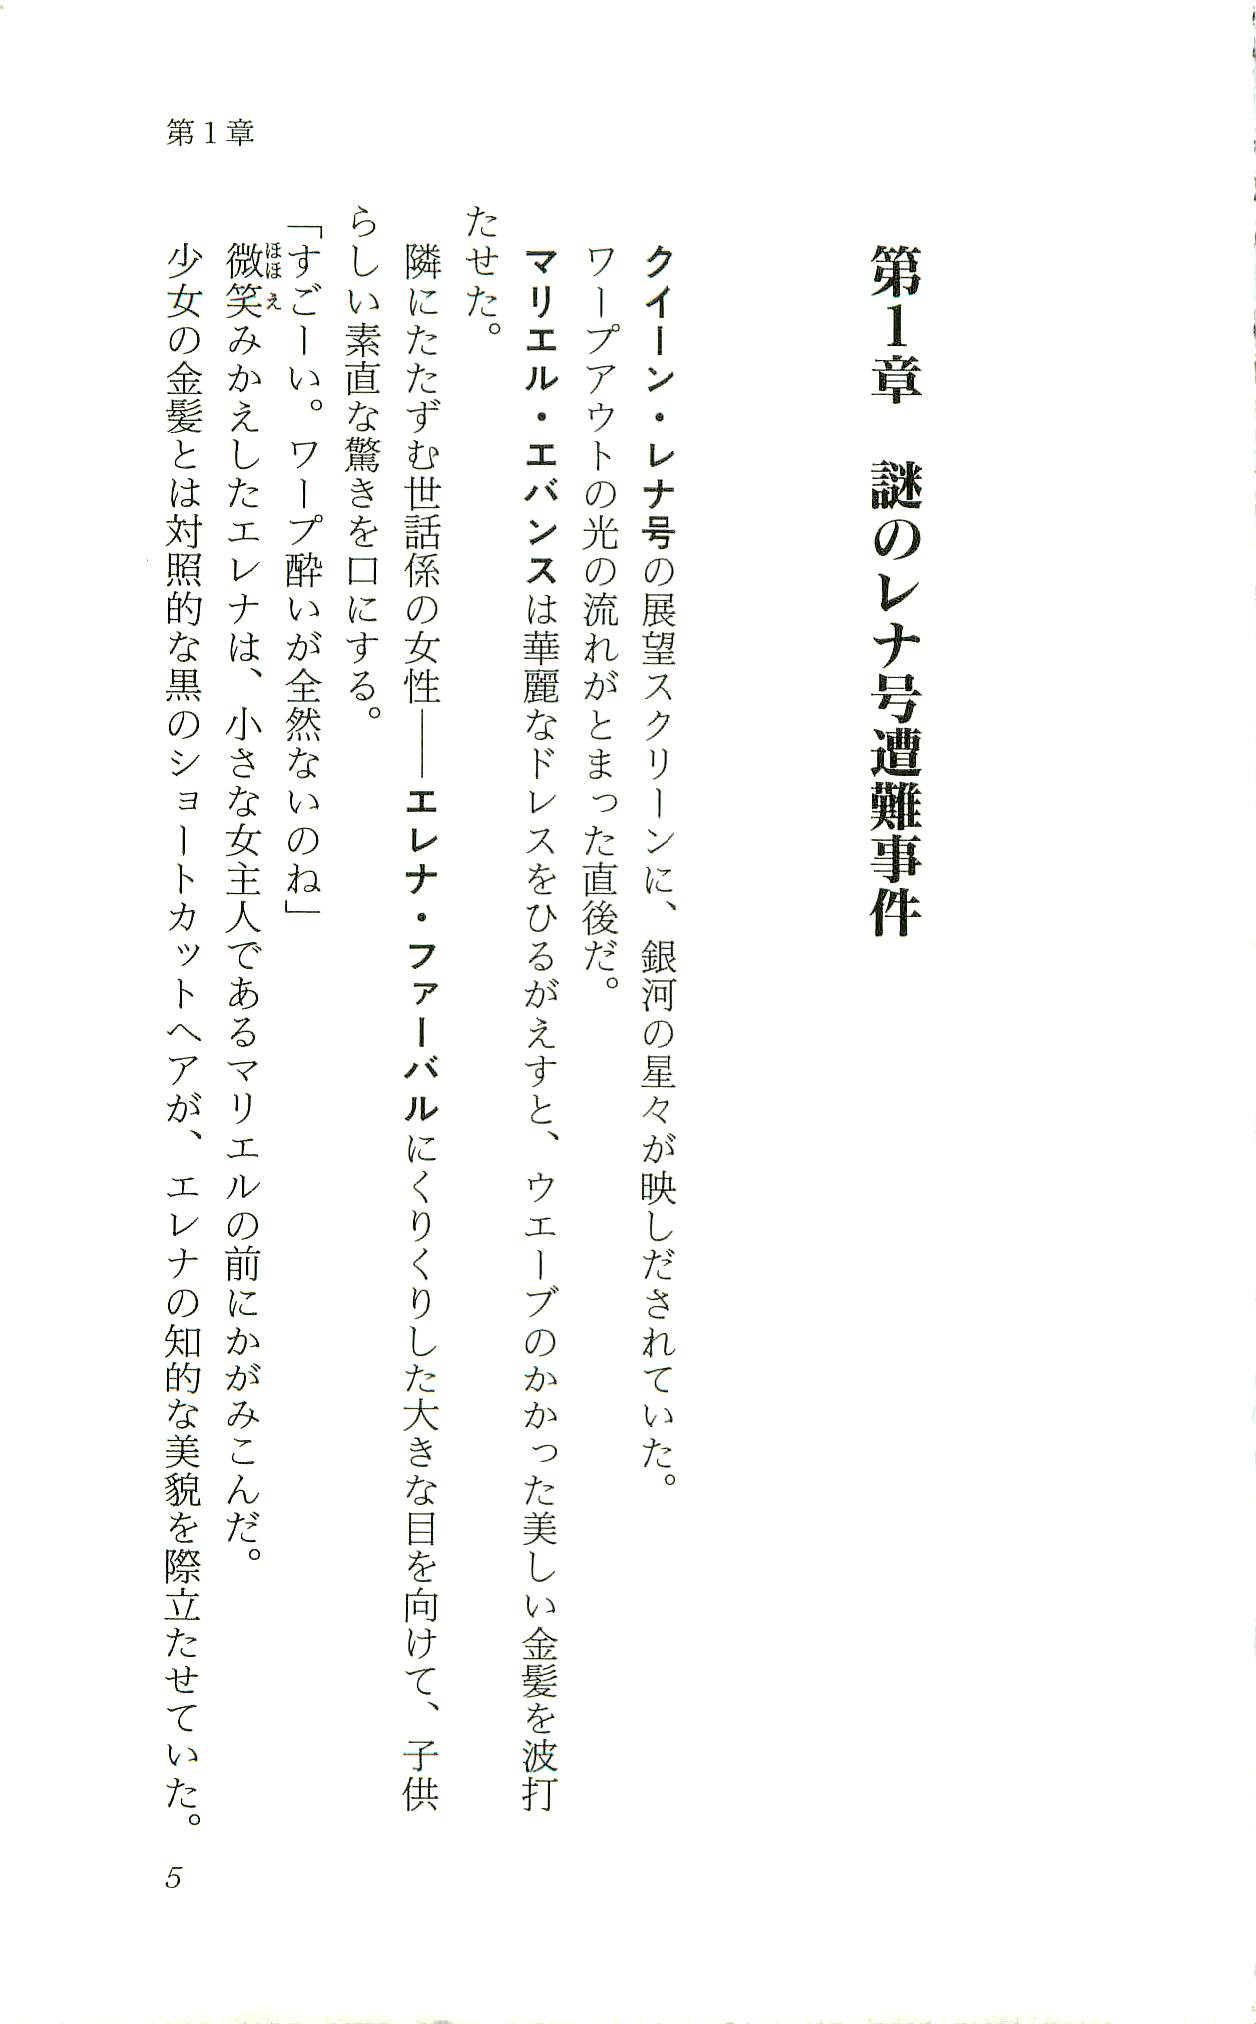 第1章
第1章　謎のレナ号遭難事件
クイーン・レナ号の展望スクリーンに、銀河の星々が映しだされていた。
ワープアウトの光の流れがとまった直後だ。
マリエル・エバンスは華麗なドレスをひるがえすと、ウエーブのかかった美しい金髪を波打
たせた。
隣にたたずむ世話係の女性――エレナ・ファーバルにくりくりした大きな目を向けて、子供
らしい素直な驚きを口にする。
「すごーい。ワープ酔いが全然ないのね」
微笑みかえしたエレナは、小さな女主人であるマリエルの前にかがみこんだ。
ほほえ
少女の金髪とは対照的な黒のショートカットヘアが、エレナの知的な美貌を際立たせていた。
5